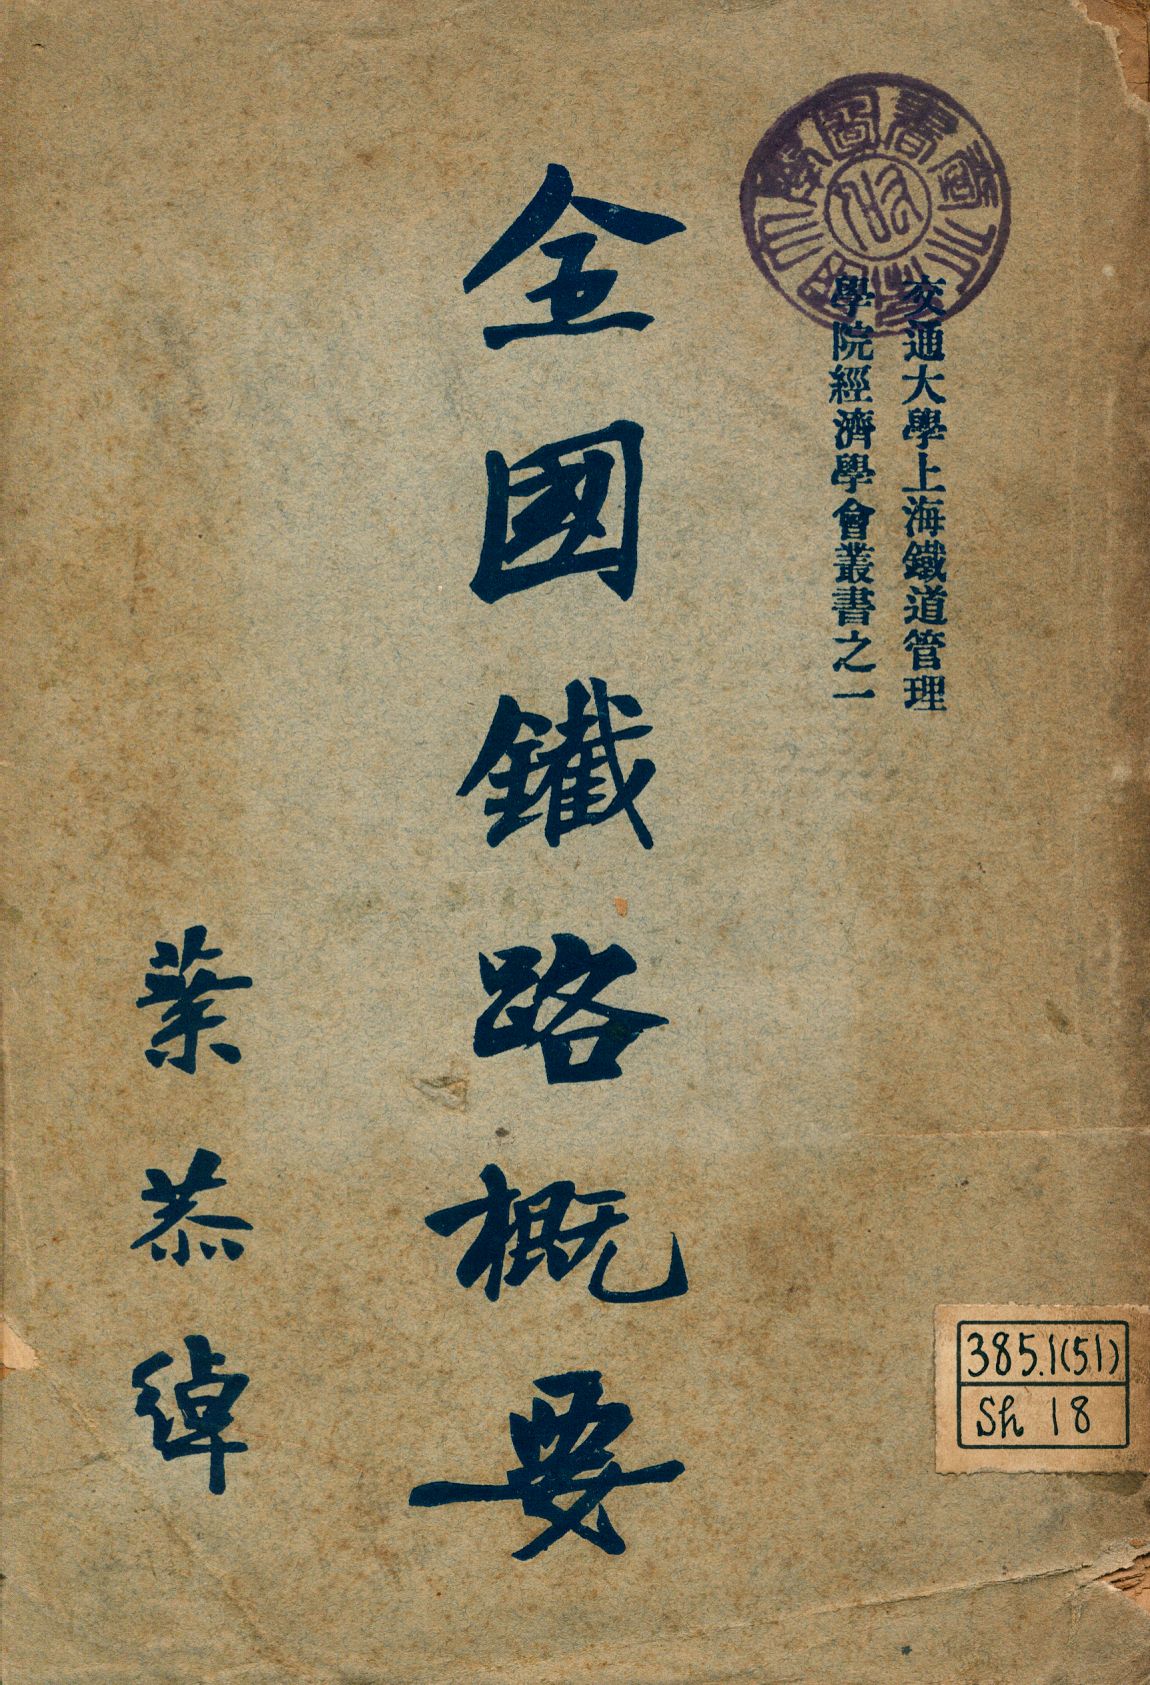 交通大學上海鐵道管理
學院經濟學會叢書之一
全國鐵路概要
葉恭綽
385.1(51)
Sh 18